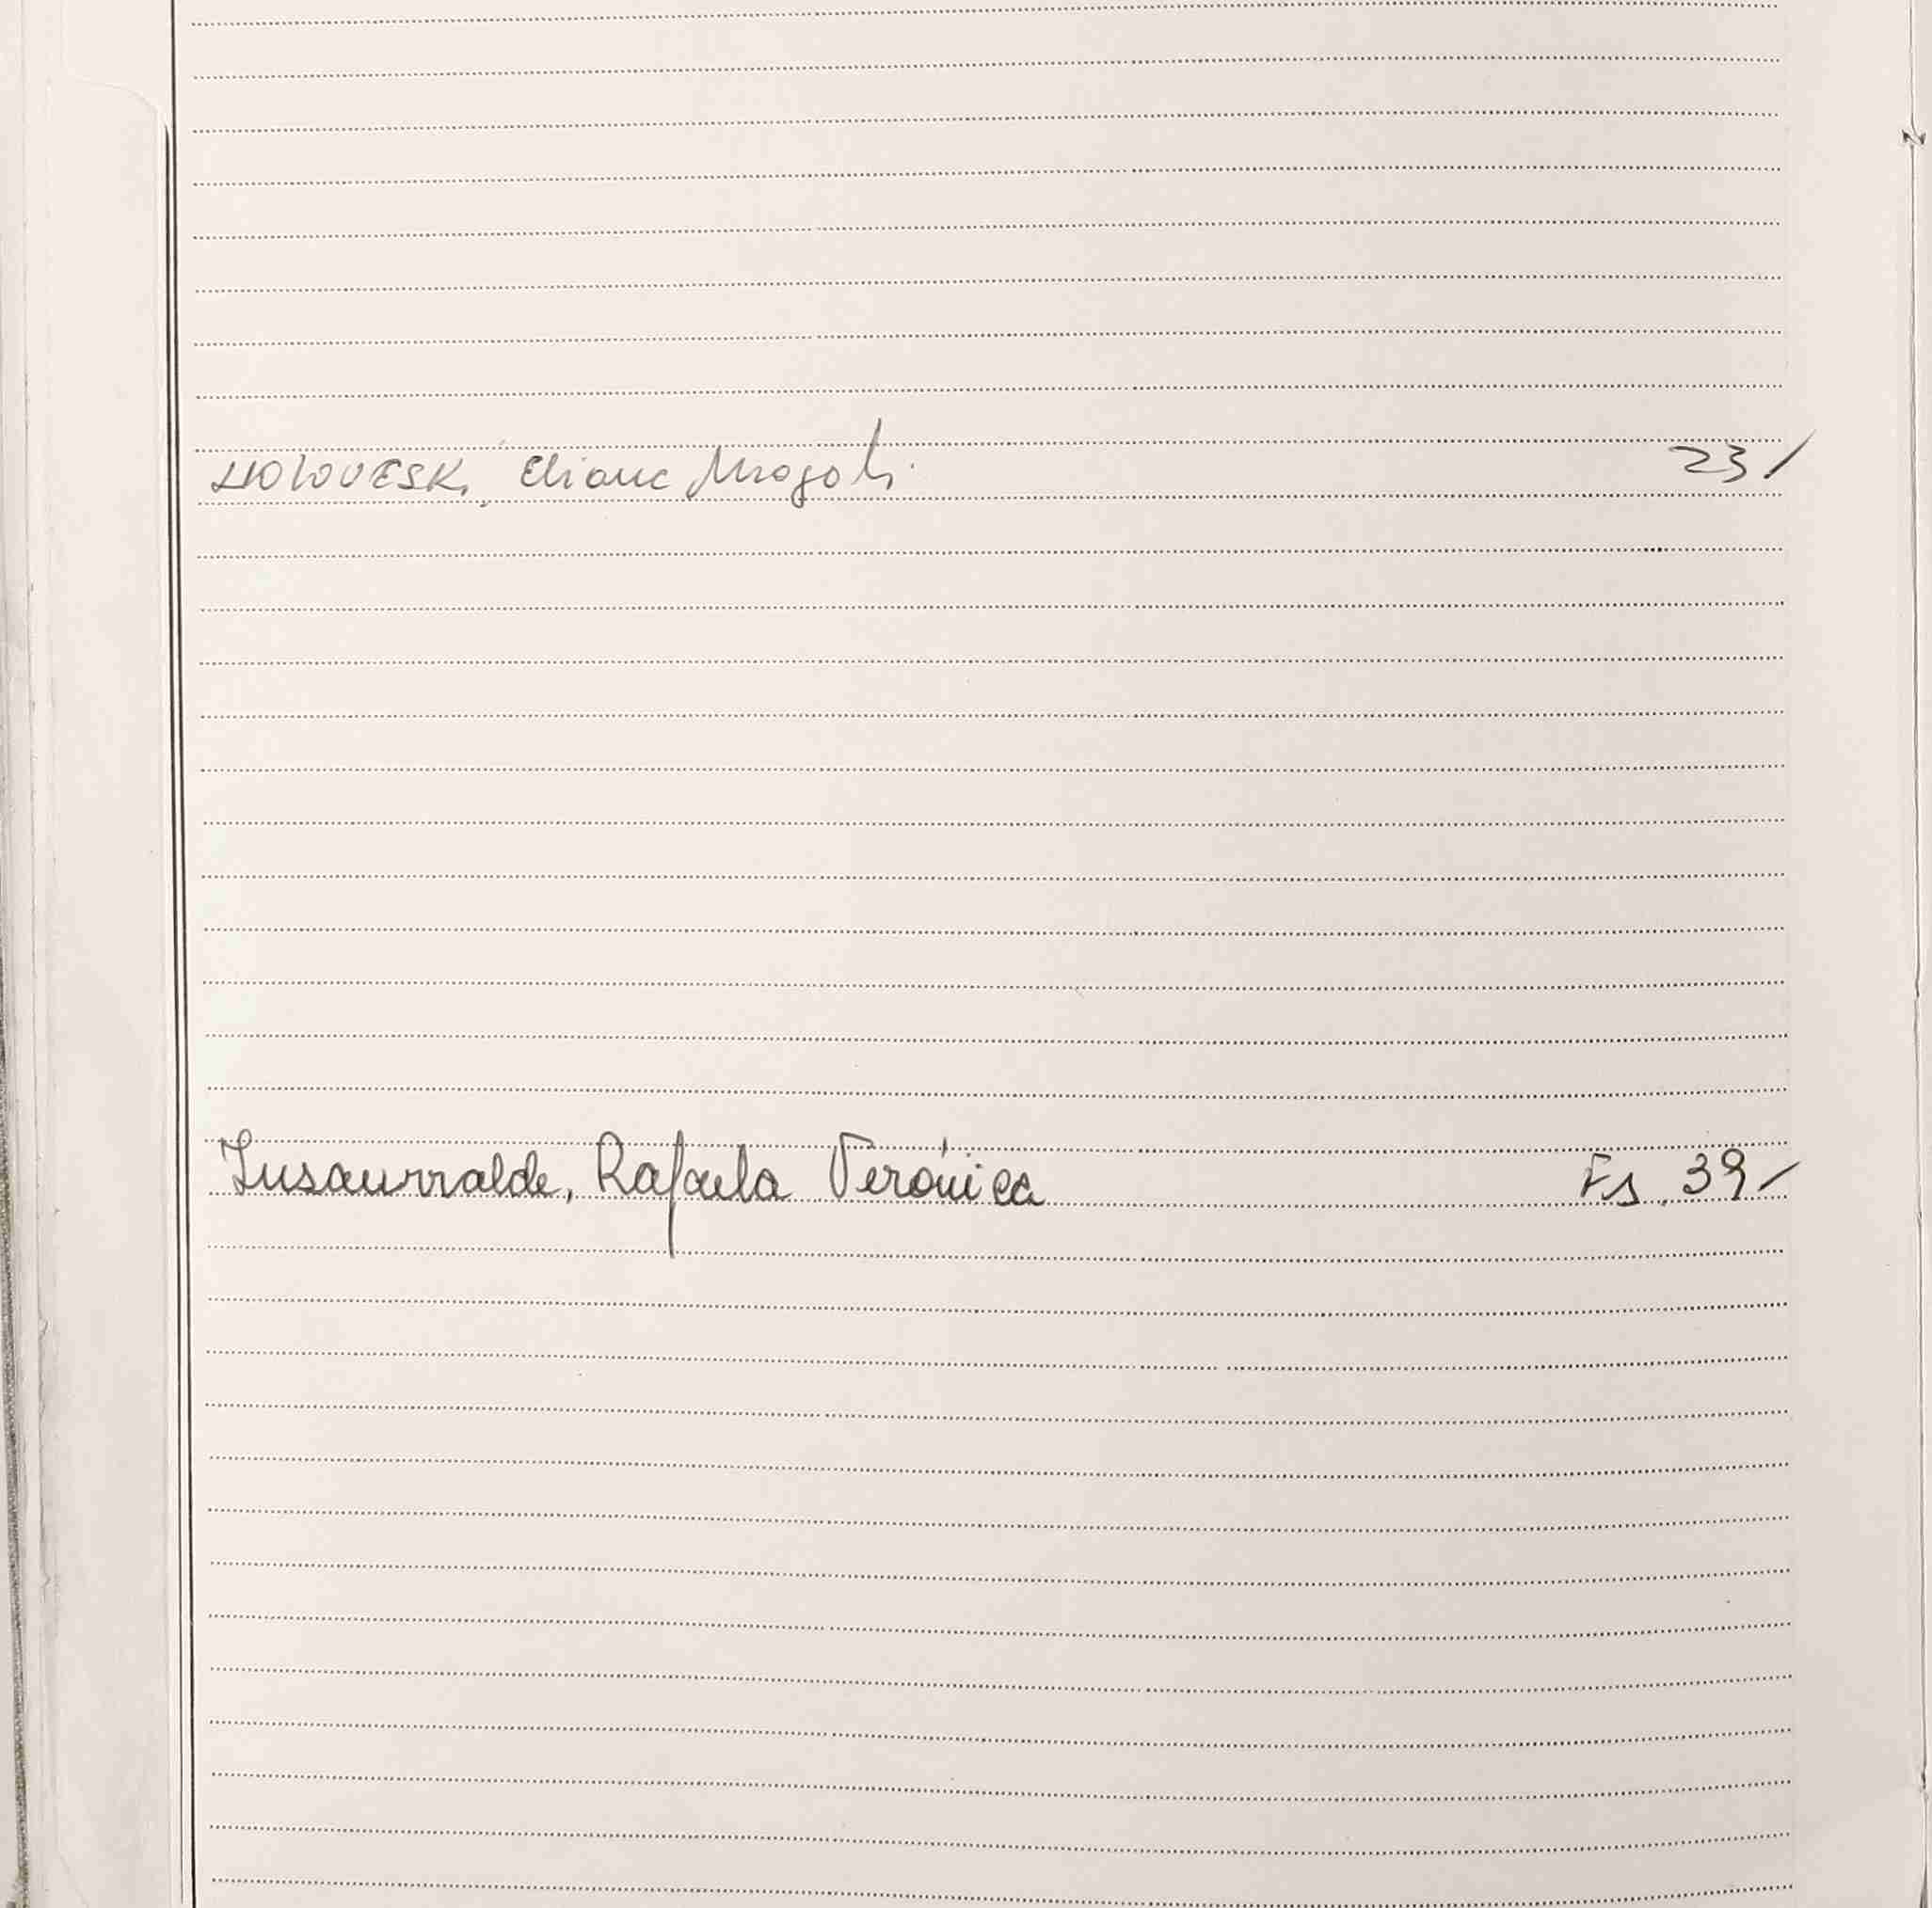 HOLOVESKI, Eliane Magali 23/
Insaurralde, Rafaela Verónica Fs. 39/